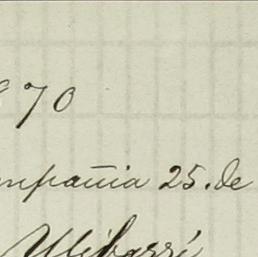 870
mpañia 25. de
Ulibarri